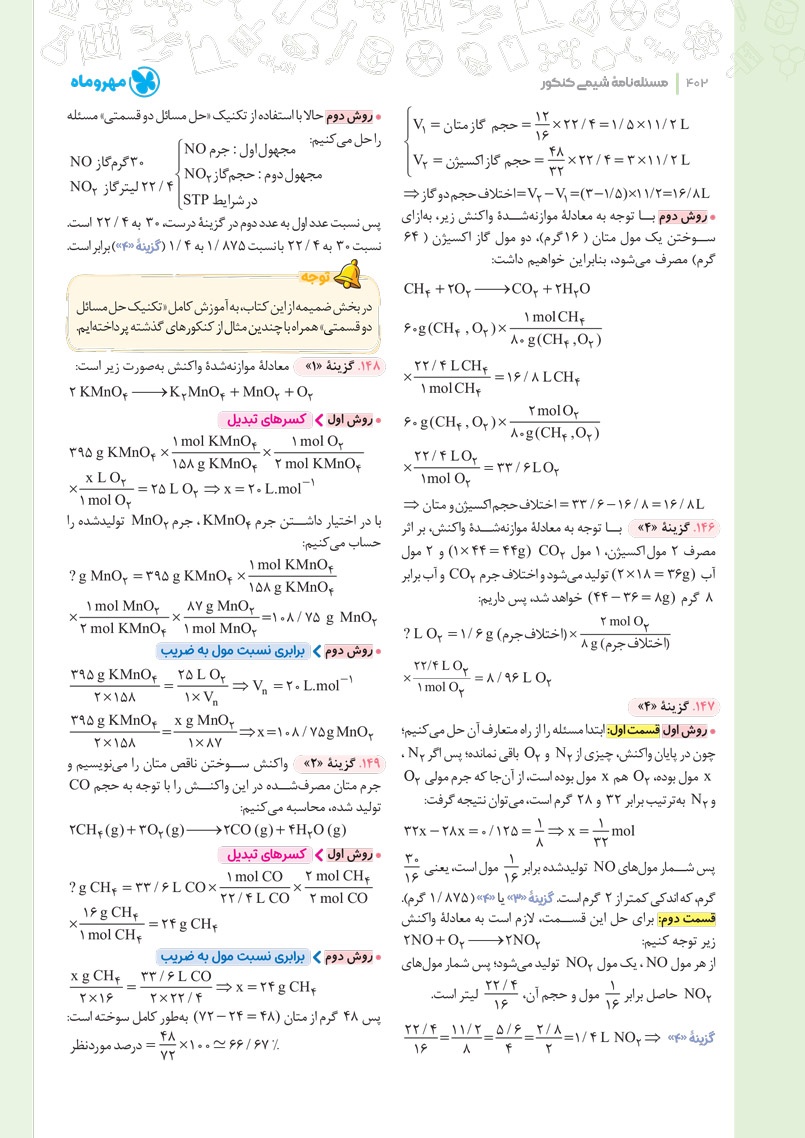 ۴۰۲ | مسئله‌نامهٔ شیمی کنکور
مهروماه
V₁ = حجم گاز متان = ۱۲/۱۶ × ۲۲/۴ = ۱/۵ × ۱۱/۲ L
V₂ = حجم گاز اکسیژن = ۴۸/۳۲ × ۲۲/۴ = ۳ × ۱۱/۲ L
⇒ اختلاف حجم دو گاز = V₂ − V₁ = (۳−۱/۵)×۱۱/۲ = ۱۶/۸ L
• روش دوم بـا توجه به معادلهٔ موازنه‌شـدهٔ واکنش زیر، به‌ازای
سـوختن یک مول متان (۱۶ گرم)، دو مول گاز اکسیژن (۶۴
گرم) مصرف می‌شود، بنابراین خواهیم داشت:
CH₄ + ۲O₂ ⟶ CO₂ + ۲H₂O
۶۰ g (CH₄ , O₂) × ۱ mol CH₄ / ۸۰ g (CH₄ , O₂)
× ۲۲/۴ L CH₄ / ۱ mol CH₄ = ۱۶/۸ L CH₄
۶۰ g (CH₄ , O₂) × ۲ mol O₂ / ۸۰ g (CH₄ , O₂)
× ۲۲/۴ L O₂ / ۱ mol O₂ = ۳۳/۶ L O₂
⇒ اختلاف حجم اکسیژن و متان = ۳۳/۶ − ۱۶/۸ = ۱۶/۸ L
۱۴۶. گزینهٔ «۴» بـا توجه به معادلهٔ موازنه‌شـدهٔ واکنش، بر اثر
مصرف ۲ مول اکسیژن، ۱ مول CO₂ (۱×۴۴ = ۴۴g) و ۲ مول
آب (۲×۱۸ = ۳۶g) تولید می‌شود و اختلاف جرم CO₂ و آب برابر
۸ گرم (۴۴ − ۳۶ = ۸g) خواهد شد، پس داریم:
? L O₂ = ۱/۶ g (اختلاف جرم) × ۲ mol O₂ / ۸ g (اختلاف جرم)
× ۲۲/۴ L O₂ / ۱ mol O₂ = ۸/۹۶ L O₂
۱۴۷. گزینهٔ «۴»
• روش اول قسمت اول: ابتدا مسئله را از راه متعارف آن حل می‌کنیم؛
چون در پایان واکنش، چیزی از N₂ و O₂ باقی نمانده؛ پس اگر N₂ ،
x مول بوده، O₂ هم x مول بوده است، از آن‌جا که جرم مولی O₂
و N₂ به‌ترتیب برابر ۳۲ و ۲۸ گرم است، می‌توان نتیجه گرفت:
۳۲x − ۲۸x = ۰/۱۲۵ = ۱/۸ ⇒ x = ۱/۳۲ mol
پس شـمار مول‌های NO تولیدشده برابر ۱/۱۶ مول است، یعنی ۳۰/۱۶
گرم، که اندکی کمتر از ۲ گرم است. گزینهٔ «۳» یا «۴» (۱/۸۷۵ گرم).
قسمت دوم: برای حل این قسـمت، لازم است به معادلهٔ واکنش
زیر توجه کنیم: ۲NO + O₂ ⟶ ۲NO₂
از هر مول NO ، یک مول NO₂ تولید می‌شود؛ پس شمار مول‌های
NO₂ حاصل برابر ۱/۱۶ مول و حجم آن، ۲۲/۴ / ۱۶ لیتر است.
۲۲/۴ / ۱۶ = ۱۱/۲ / ۸ = ۵/۶ / ۴ = ۲/۸ / ۲ = ۱/۴ L NO₂ ⇒ گزینهٔ «۴»
• روش دوم حالا با استفاده از تکنیک «حل مسائل دو قسمتی» مسئله
را حل می‌کنیم:
مجهول اول : جرم NO
مجهول دوم : حجم گاز NO₂
در شرایط STP
۳۰ گرم گاز NO
۲۲/۴ لیتر گاز NO₂
پس نسبت عدد اول به عدد دوم در گزینهٔ درست، ۳۰ به ۲۲/۴ است.
نسبت ۳۰ به ۲۲/۴ با نسبت ۱/۸۷۵ به ۱/۴ (گزینهٔ «۴») برابر است.
توجه
در بخش ضمیمه از این کتاب، به آموزش کامل «تکنیک حل مسائل
دو قسمتی» همراه با چندین مثال از کنکورهای گذشته پرداخته‌ایم.
۱۴۸. گزینهٔ «۱» معادلهٔ موازنه‌شدهٔ واکنش به‌صورت زیر است:
۲ KMnO₄ ⟶ K₂MnO₄ + MnO₂ + O₂
• روش اول ❯ کسرهای تبدیل
۳۹۵ g KMnO₄ × ۱ mol KMnO₄ / ۱۵۸ g KMnO₄ × ۱ mol O₂ / ۲ mol KMnO₄
× x L O₂ / ۱ mol O₂ = ۲۵ L O₂ ⇒ x = ۲۰ L.mol⁻¹
با در اختیار داشـتن جرم KMnO₄ ، جرم MnO₂ تولیدشده را
حساب می‌کنیم:
? g MnO₂ = ۳۹۵ g KMnO₄ × ۱ mol KMnO₄ / ۱۵۸ g KMnO₄
× ۱ mol MnO₂ / ۲ mol KMnO₄ × ۸۷ g MnO₂ / ۱ mol MnO₂ = ۱۰۸/۷۵ g MnO₂
• روش دوم ❯ برابری نسبت مول به ضریب
۳۹۵ g KMnO₄ / ۲×۱۵۸ = ۲۵ L O₂ / ۱×Vₙ ⇒ Vₙ = ۲۰ L.mol⁻¹
۳۹۵ g KMnO₄ / ۲×۱۵۸ = x g MnO₂ / ۱×۸۷ ⇒ x = ۱۰۸/۷۵ g MnO₂
۱۴۹. گزینهٔ «۲» واکنش سـوختن ناقص متان را می‌نویسیم و
جرم متان مصرف‌شـده در این واکنـش را با توجه به حجم CO
تولید شده، محاسبه می‌کنیم:
۲CH₄ (g) + ۳O₂ (g) ⟶ ۲CO (g) + ۴H₂O (g)
• روش اول ❯ کسرهای تبدیل
? g CH₄ = ۳۳/۶ L CO × ۱ mol CO / ۲۲/۴ L CO × ۲ mol CH₄ / ۲ mol CO
× ۱۶ g CH₄ / ۱ mol CH₄ = ۲۴ g CH₄
• روش دوم ❯ برابری نسبت مول به ضریب
x g CH₄ / ۲×۱۶ = ۳۳/۶ L CO / ۲×۲۲/۴ ⇒ x = ۲۴ g CH₄
پس ۴۸ گرم از متان (۴۸ = ۲۴ − ۷۲) به‌طور کامل سوخته است:
درصد موردنظر = ۴۸/۷۲ × ۱۰۰ ≃ ۶۶/۶۷ ٪